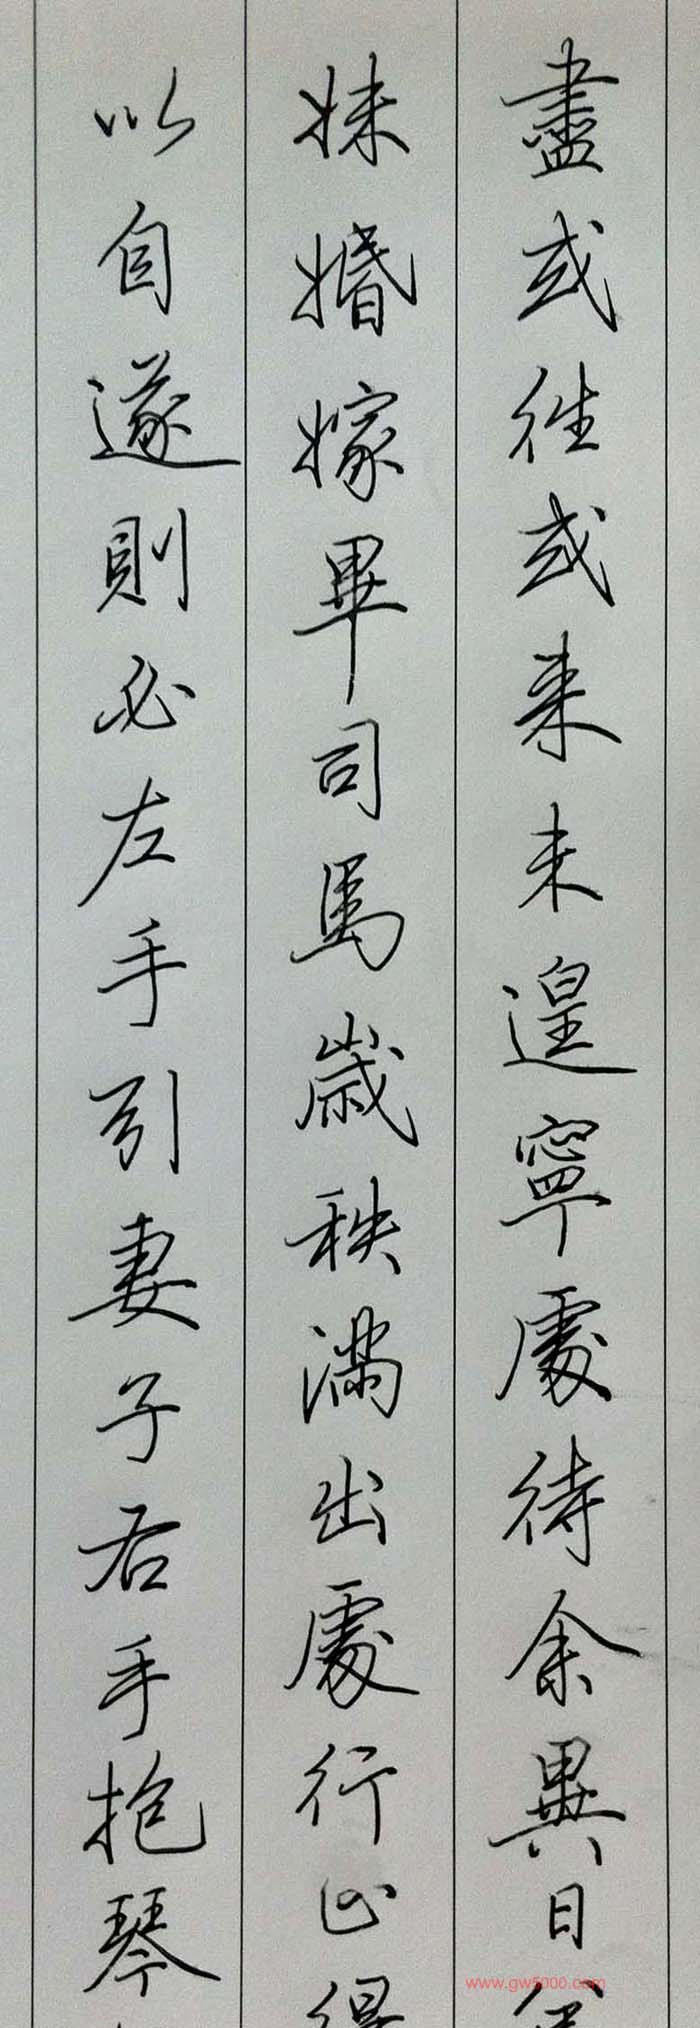 盡或往或来未遑寧處待余異日
妹婚嫁畢司馬歲秩滿出處行止得
以自遂則必左手引妻子右手抱琴
www.gw5000.com